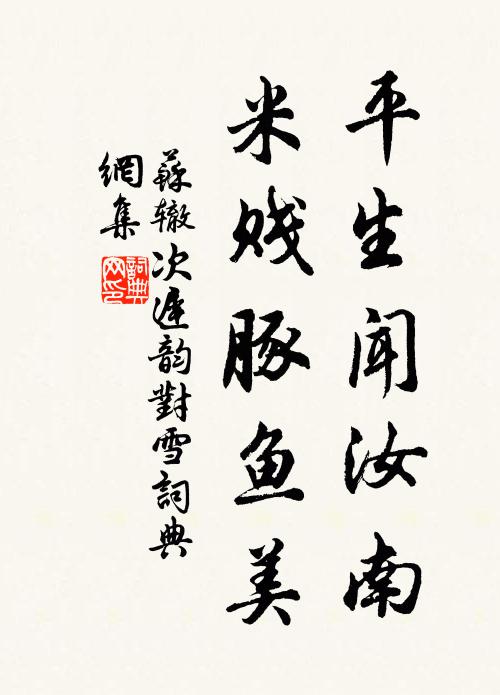 平生闻汝南
米贱豚鱼美
蘇辙次遲韵對雪詞典
網集
詞典
网印